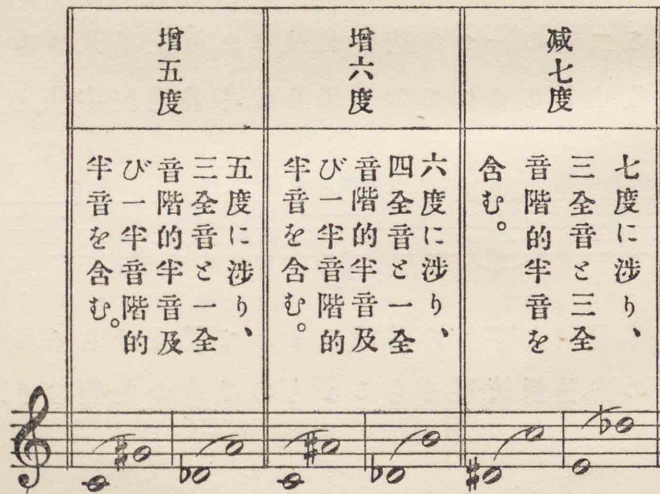 減七度
七度に渉り、
三全音と三全
音階的半音を
含む。
增六度
六度に渉り、
四全音と一全
音階的半音及
び一半音階的
半音を含む。
增五度
五度に渉り、
三全音と一全
音階的半音及
び一半音階的
半音を含む。